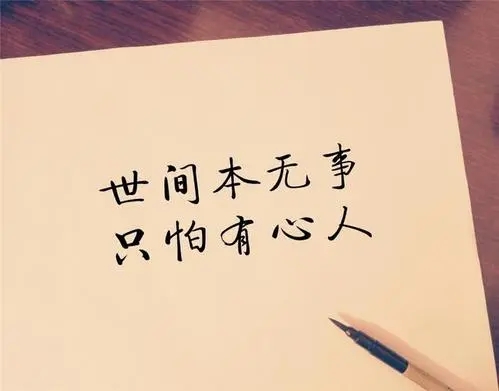 世间本无事
只怕有心人